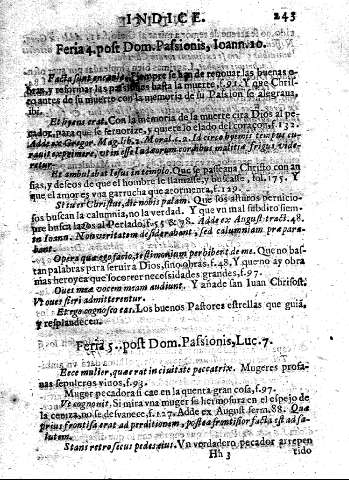 INDICE. 243
Feria 4. post Dom. Passionis, Ioann. 10.
Facta sunt encænia. Siempre se han de renouar las buenas o-
bras, y reformar las passiones hasta la muerte f.91. Y que Chris-
to antes de su muerto con la memoria de su Passion se alegraua,
ibi.
Et hyems erat. Con la memoria de la muerte cita Dios al pe-
cador, para que se feruorize, y quiete lo elado del coraçon, f.132.
Adde ex Gregor. Mag. lib.2. Moral. c.2.
Et ambulabat Iesus in templo. Que se passeaua Christo con an
sias, y deseos de que el hombre le llamasse, y buscasse, fol.175. Y
que el amor es voa garrucha que atormenta, f.129.
Si tu es Christus, dic nobis palam. Que los alturos pernicio-
sos buscan la calumnia, no la verdad. Y que vn mal subdito siem-
pre busca lazos al Perlado, f.55 & 78. Adde ex August. tract. 48.
in Ioann. Non veritatem desiderabant, sed calumniam præpara-
bant.
Opera quæ ego facio, testimonium perhibent de me. Que no bas-
tan palabras para seruir a Dios, sino obras, f.48, Y que no ay obra
mas heroyca que socorrer necessidades grandes, f.97.
Oues meæ vocem meam audiunt. Y añade san Iuan Chrisost.
Vt oues fieri admitterentur.
Et ego cognosco eas. Los buenos Pastores estrellas que guiã,
y resplandecen.
Feria 5. post Dom. Passionis, Luc. 7.
Ecce mulier, quæ erat in ciuitate peccatrix. Mugeres profa-
nas sepulcros viuos, f.93.
Muger pecadora si cae en la quenta gran cosa, f.97.
Vt cognouit. Si mira vna muger se hermosura en el espejo de
la ceniza, no se desvanece, f.127. Adde ex August serm. 88. Quæ
prius frontosa erat ad perditionem, postea frontosior facta est ad sa-
lutem.
Stans retro secus pedes eius. Vn verdadero pecador arrepen
Hh 3 tido